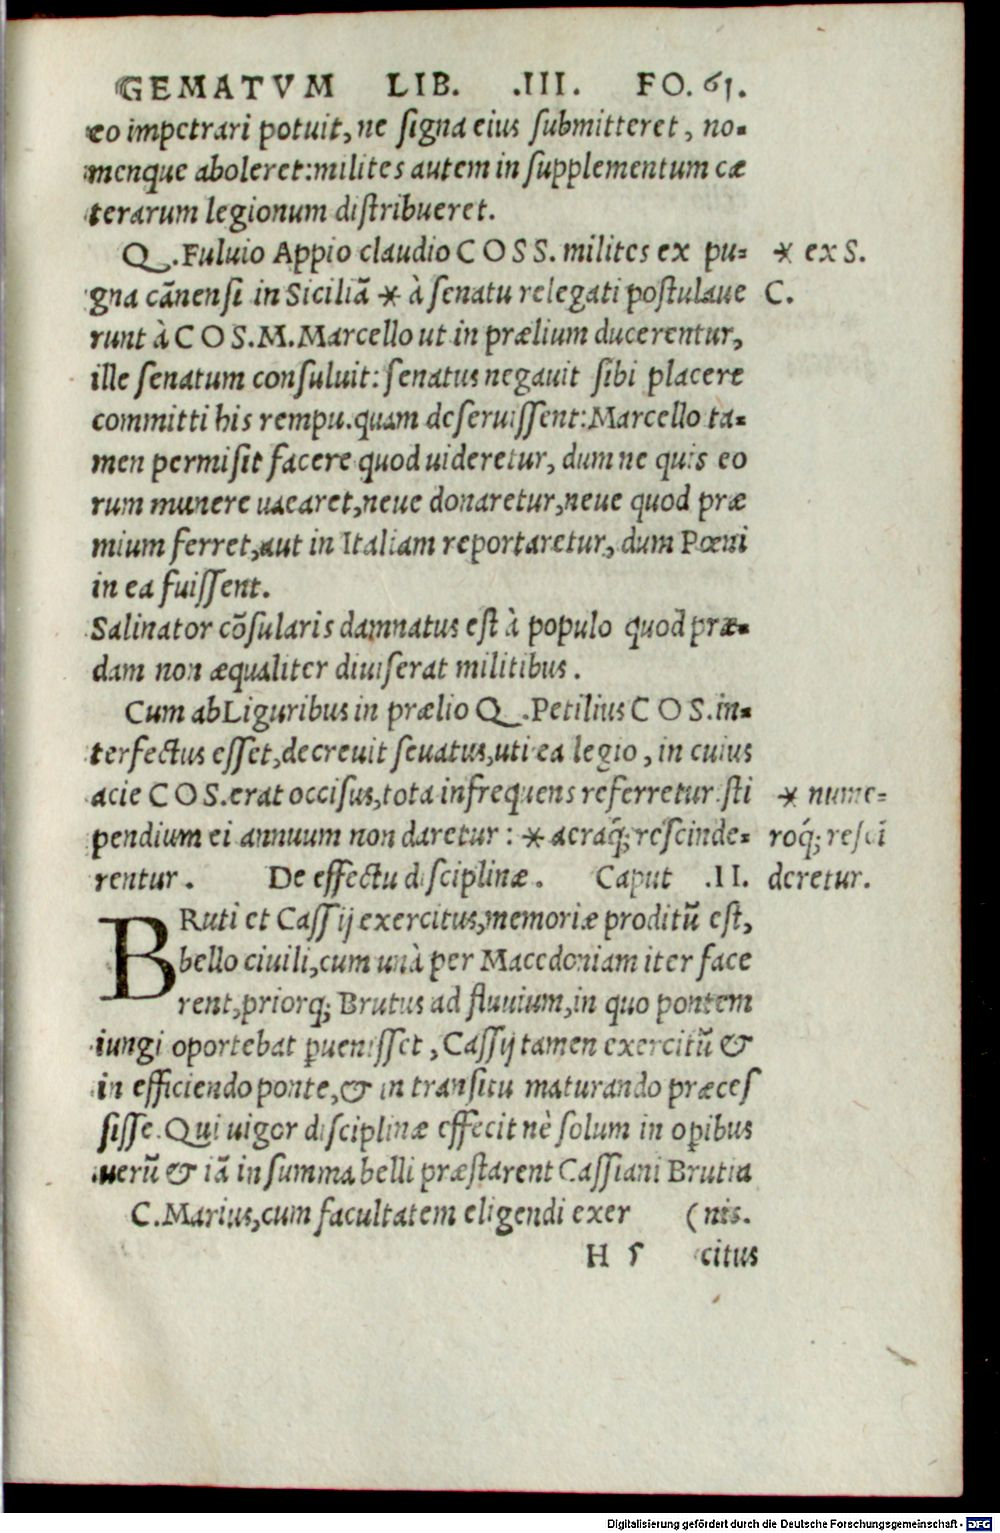 GEMATVM LIB. .III. FO. 61.
eo impetrari potuit, ne ſigna eius ſubmitteret, no-
menque aboleret: milites autem in ſupplementum cæ
terarum legionum diſtribueret.
Q. Fuluio Appio claudio COSS. milites ex pu- * ex S.
gna cãnenſi in Siciliã * à ſenatu relegati poſtulaue C.
runt à COS. M. Marcello ut in prælium ducerentur,
ille ſenatum conſuluit: ſenatus negauit ſibi placere
committi his rempu. quam deſeruiſſent: Marcello ta-
men permiſit facere quod uideretur, dum ne quis eo
rum munere uacaret, neue donaretur, neue quod præ
mium ferret, aut in Italiam reportaretur, dum Pœni
in ea fuiſſent.
Salinator cõſularis damnatus eſt à populo quod præ-
dam non æqualiter diuiſerat militibus.
Cum ab Liguribus in prælio Q. Petilius COS. in-
terfectus eſſet, decreuit ſeuatus, uti ea legio, in cuius
acie COS. erat occiſus, tota infrequens referretur ſti * nume-
pendium ei annuum non daretur: * æraq; reſcinde- roq́; reſcĩ
rentur. De effectu diſciplinæ. Caput .II. deretur.
BRuti et Caſſij exercitus, memoriæ proditũ eſt,
bello ciuili, cum unà per Macedoniam iter face
rent, priorq; Brutus ad fluuium, in quo pontem
iungi oportebat ꝑueniſſet, Caſſij tamen exercitũ &
in efficiendo ponte, & in tranſitu maturando præceſ
ſiſſe. Qui uigor diſciplinæ effecit nè ſolum in oꝑibus
uerũ & iã in ſumma belli præſtarent Caſſiani Brutia
C. Marius, cum facultatem eligendi exer (nis.
H 5 citus
Digitalisierung gefördert durch die Deutsche Forschungsgemeinschaft - DFG